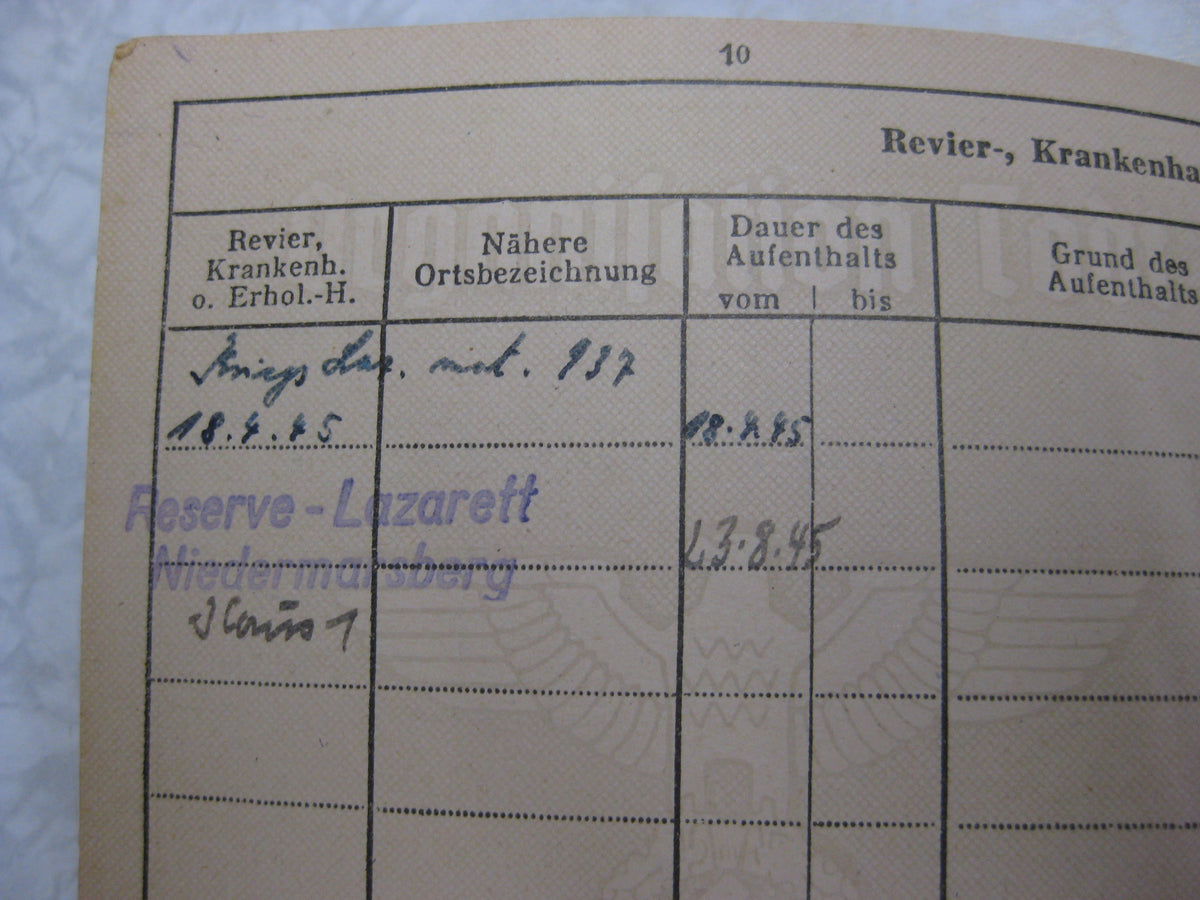 10
Revier-, Krankenha
Revier,
Krankenh.
o. Erhol.-H.
Nähere
Ortsbezeichnung
Dauer des
Aufenthalts
vom | bis
Grund des
Aufenthalts
Kriegs Laz. mot. 937
18.4.45 18.4.45
Reserve-Lazarett
23.8.45
Niedermarsberg
Haus 1